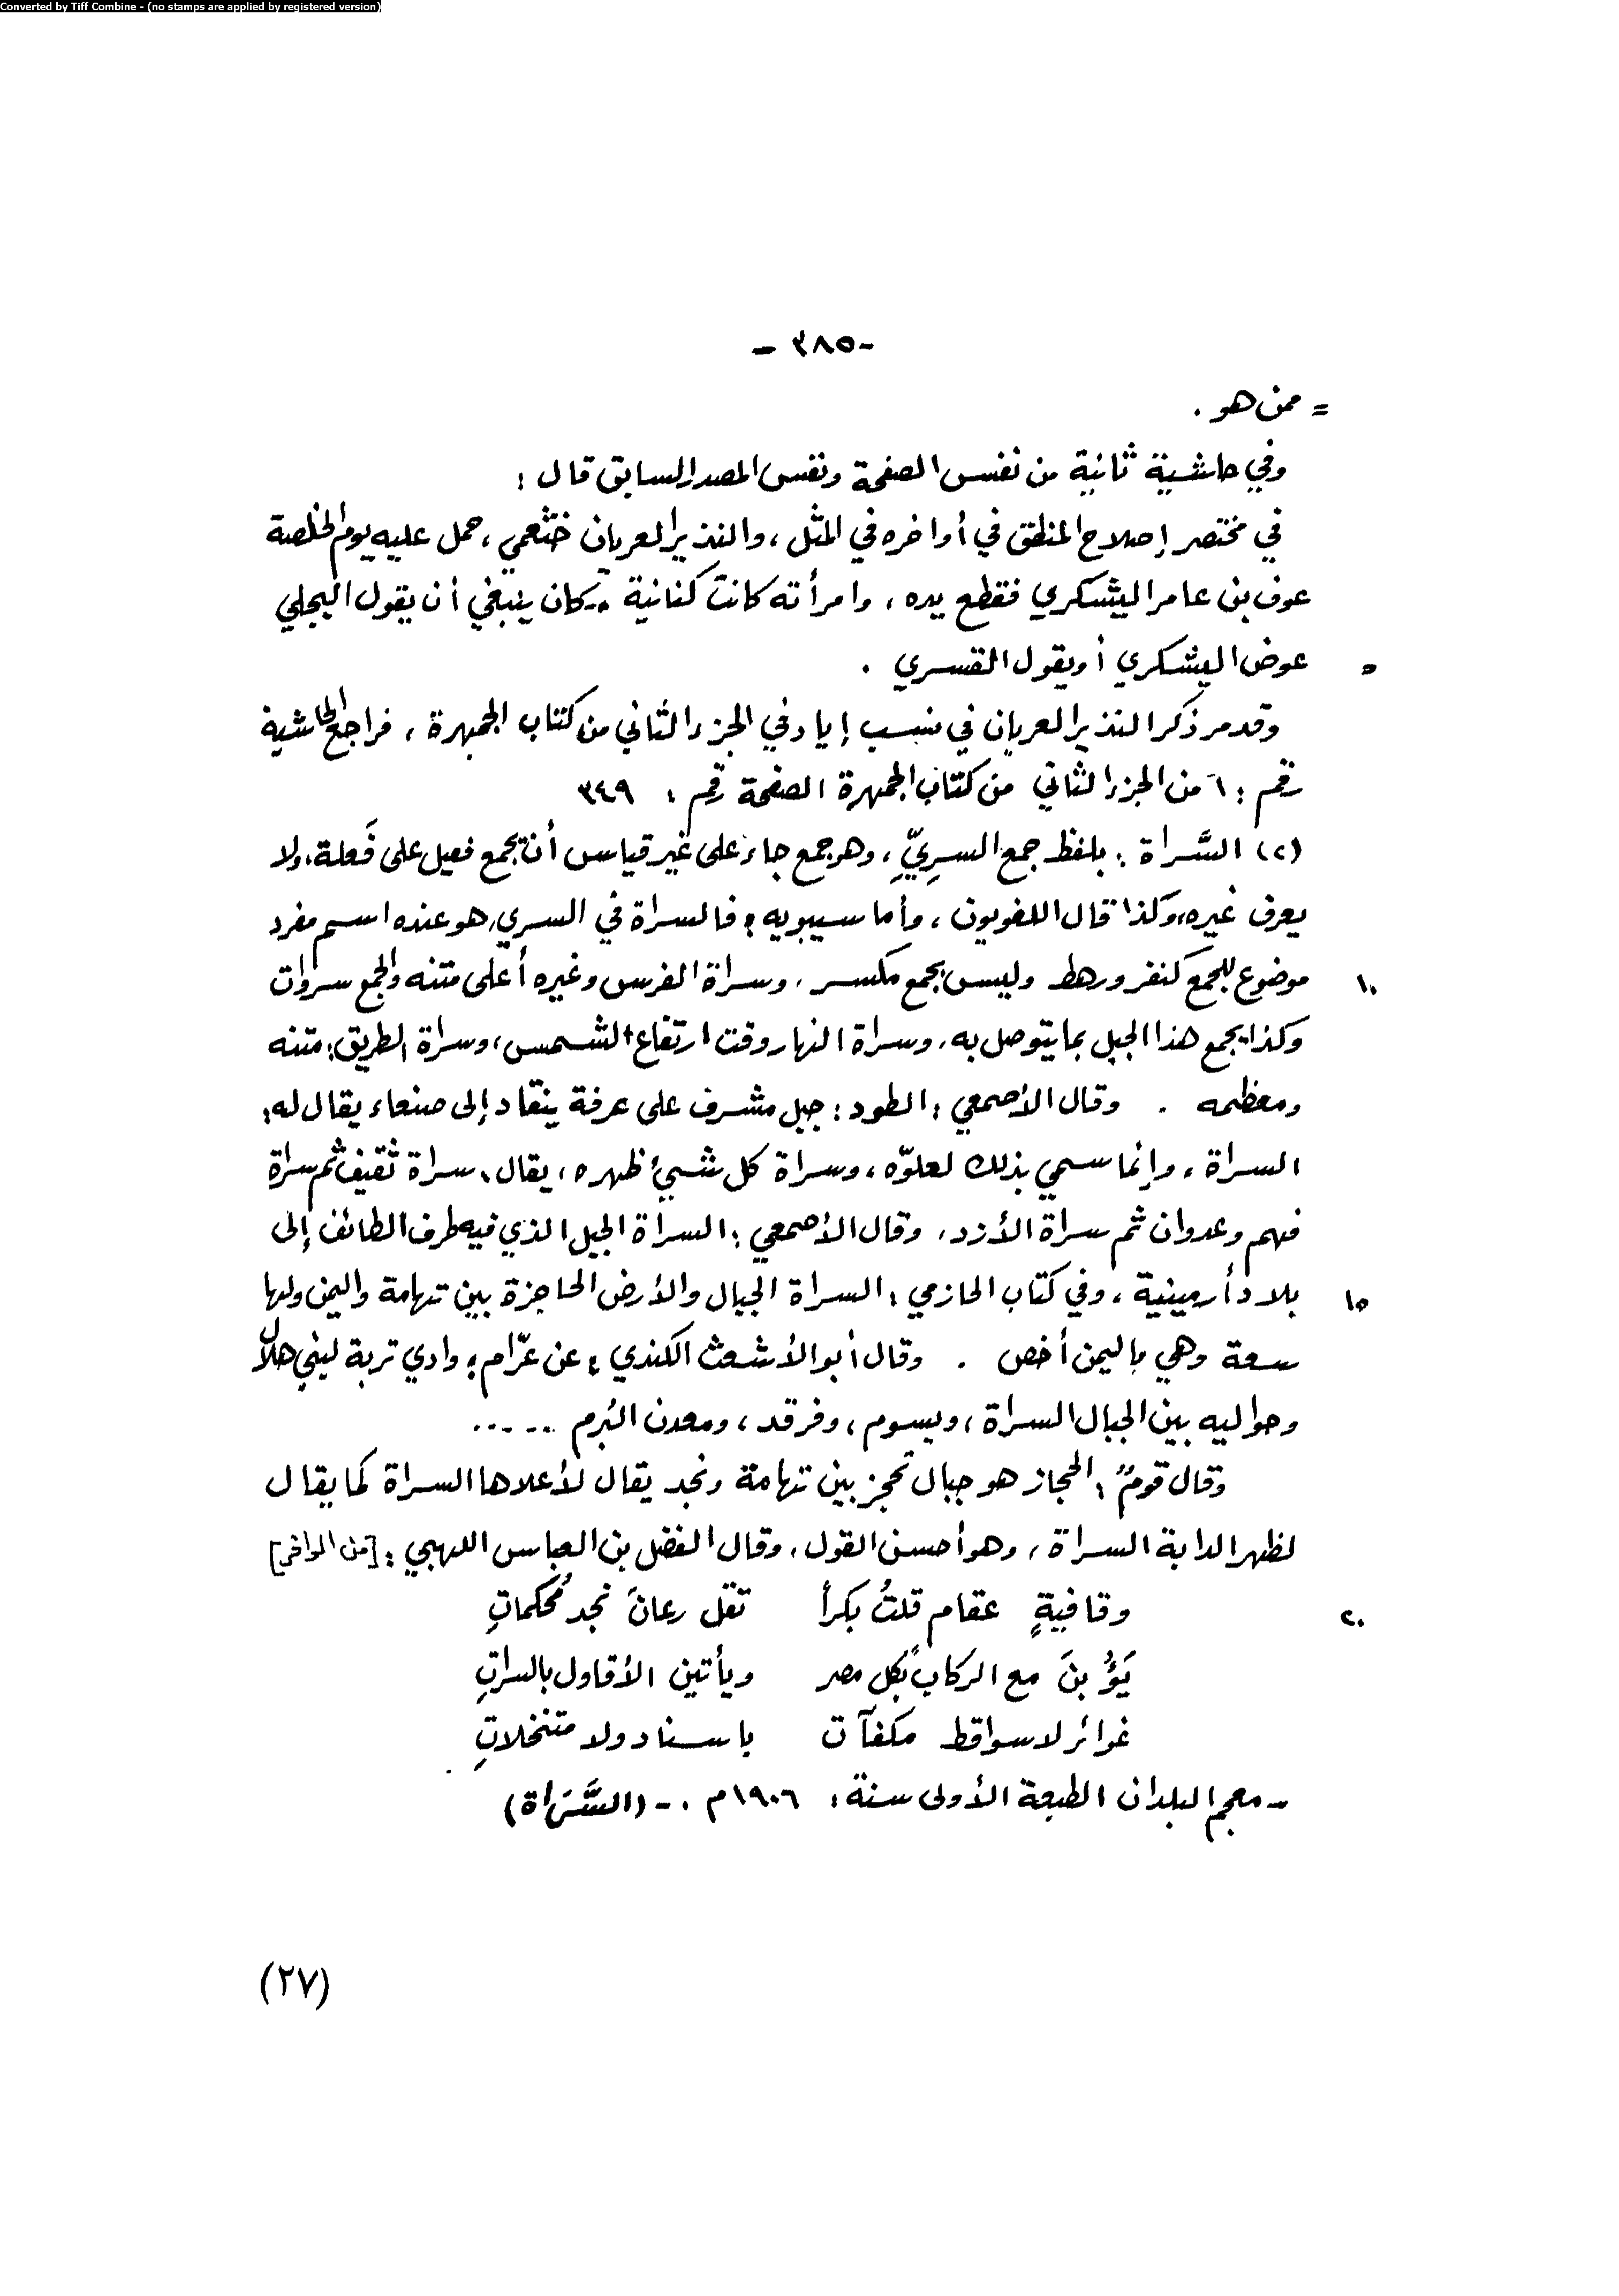 Converted by Tiff Combine - (no stamps are applied by registered version)
-٣٨٥ -
= ممن هو .
وفي حاشية ثانية من نفس الصفحة ونفس المصدر السابق قال :
في مختصر إصلاح المنطق في أواخره في المثل ، والنذير العريان خثعمي ، حمل عليه يوم الخلصة
عوف بن عامر اليشكري فقطع يده ، وامرأته كانت كنانية .. كان ينبغي أن يقول البجلي
٥ عوض اليشكري أو يقول القسري .
وقد مر ذكر النذير العريان في نسب إياد في الجزء الثاني من كتاب الجمهرة ، فراجع الحاشية
رقم : ٦ من الجزء الثاني من كتاب الجمهرة الصفحة رقم : ٣٤٩
(٢) السَّراة : بلفظ جمع السرِيّ ، وهو جمع جاء على غير قياس أن يجمع فعيل على فَعلة ، ولا
يعرف غيره ، وكذا قال اللغويون ، وأما سيبويه ؛ فالسراة في السري ، هو عنده اسم مفرد
١٠ موضوع للجمع كنفر ورهط وليس بجمع مكسر ، وسراة الفرس وغيره أعلى متنه والجمع سروات
وكذا يجمع هذا الجبل بما يتوصل به ، وسراة النهار وقت ارتفاع الشمس ، وسراة الطريق : متنه
ومعظمه . وقال الأصمعي : الطود : جبل مشرف على عرفة ينقاد إلى صنعاء يقال له :
السراة ، وإنما سمي بذلك لعلوّه ، وسراة كل شيئ ظهره ، يقال ، سراة ثقيف ثم سراة
فهم وعدوان ثم سراة الأزد ، وقال الأصمعي : السراة الجبل الذي فيه طرف الطائف إلى
١٥ بلاد أرمينية ، وفي كتاب الحازمي : السراة الجبال والأرض الحاجزة بين تهامة واليمن ولها
سعة وهي باليمن أخص . وقال أبو الأشعث الكندي ؛ عن عرّام ؛ وادي تربة لبني هلال
وحواليه بين الجبال السراة ، ويسوم ، وفرقد ، ومعدن البُرم .....
وقال قومٌ : الحجاز هو جبال تحجز بين تهامة ونجد يقال لأعلاها السراة كما يقال
لظهر الدابة السراة ، وهو أحسن القول ، وقال الفضل بن العباس اللهبي : [من الوافر]
٢٠ وقافيةٍ عقام قلتُ بكرأ تقل رعانَ نجد مُحكماتِ
يَؤُبنَ مع الركاب بكل مصر ويأتين الأقاول بالسراتِ
غوائر لا سواقط مكفآت بإسناد ولا متنخلاتِ
- معجم البلدان الطبعة الأولى سنة : ١٩٠٦ م . - (السَّرَاة)
(٢٧)